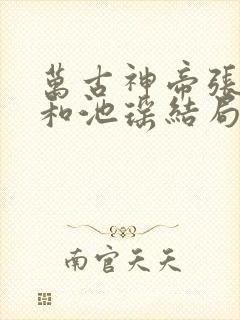 萬古神帝張
和池瑤結局
南官天天